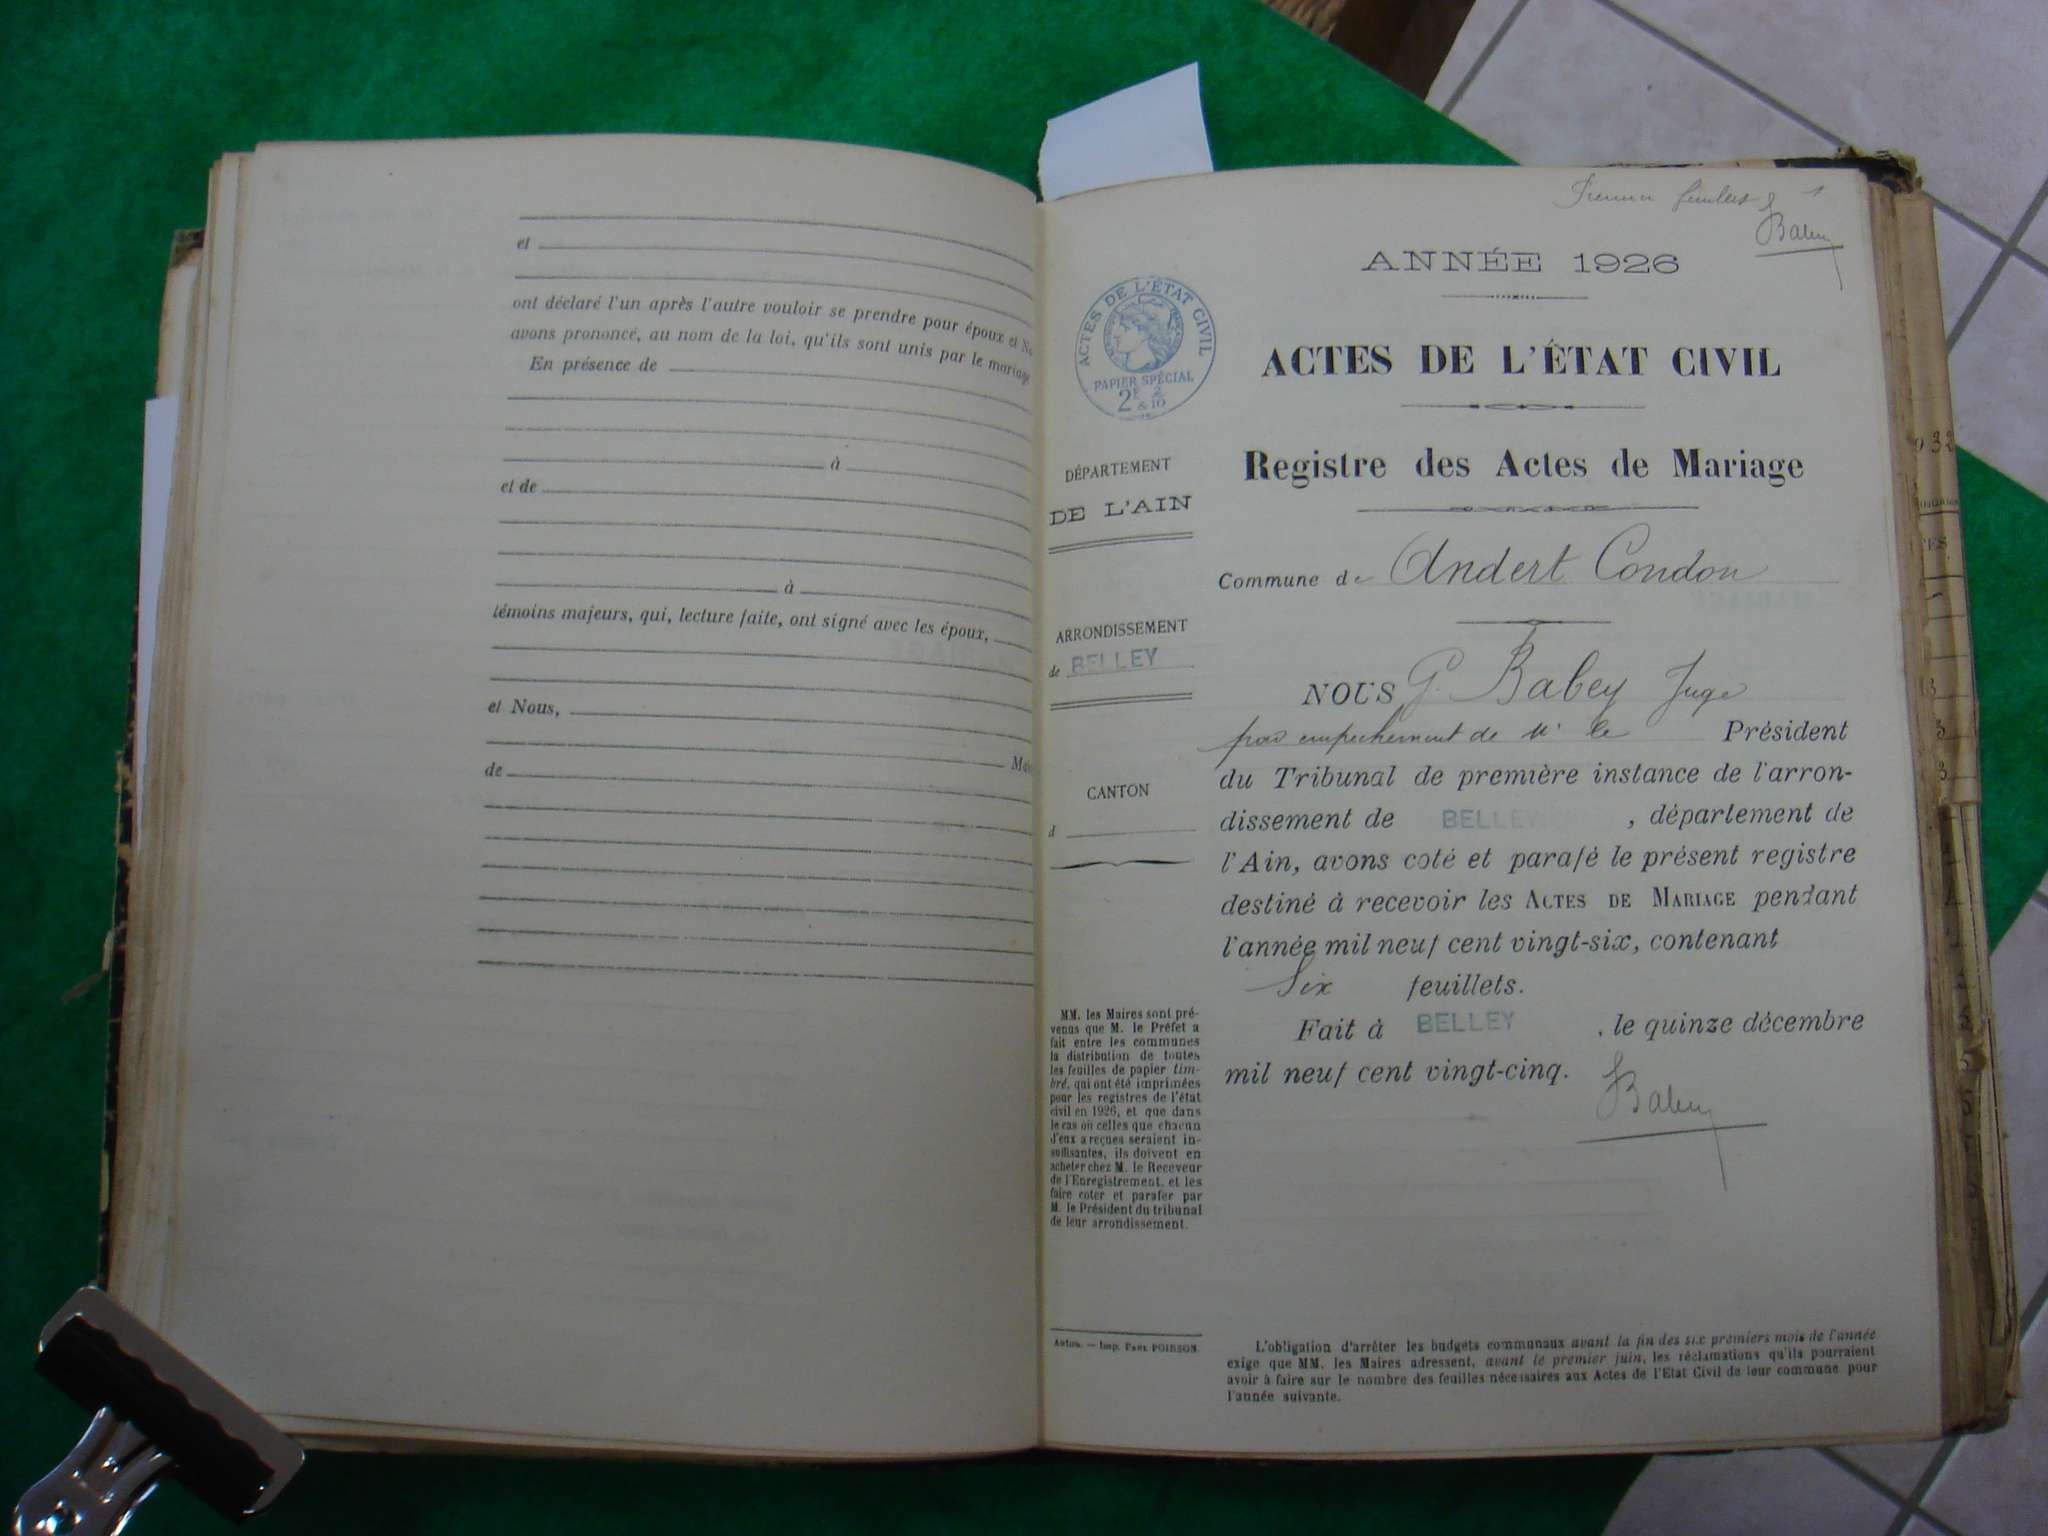 et
ont déclaré l'un après l'autre vouloir se prendre pour époux et
avons prononcé, au nom de la loi, qu'ils sont unis par le mariage
En présence de
à
et de
à
témoins majeurs, qui, lecture faite, ont signé avec les époux,
et Nous,
de
Premier feuillet
1
Babey
ANNÉE 1926
ACTES DE L'ÉTAT CIVIL
PAPIER SPÉCIAL
2F 2
& 10
ACTES DE L'ÉTAT CIVIL
Registre des Actes de Mariage
DÉPARTEMENT
DE L'AIN
ARRONDISSEMENT
de BELLEY
CANTON
d
Commune de Andert Condon
NOUS G. Babey Juge
pour empêchement de Mr le Président
du Tribunal de première instance de l'arron-
dissement de BELLEY, département de
l'Ain, avons coté et parafé le présent registre
destiné à recevoir les ACTES DE MARIAGE pendant
l'année mil neuf cent vingt-six, contenant
Six feuillets.
Fait à BELLEY, le quinze décembre
mil neuf cent vingt-cinq.
Babey
MM. les Maires sont pré-
venus que M. le Préfet a
fait entre les communes
la distribution de toutes
les feuilles de papier tim-
bré, qui ont été imprimées
pour les registres de l'état
civil en 1926, et que dans
le cas où celles que chacun
d'eux a reçues seraient in-
suffisantes, ils doivent en
acheter chez M. le Receveur
de l'Enregistrement, et les
faire coter et parafer par
M. le Président du tribunal
de leur arrondissement.
Imp. Paul POIRSON.
L'obligation d'arrêter les budgets communaux avant la fin des six premiers mois de l'année
exige que MM. les Maires adressent, avant le premier juin, les réclamations qu'ils pourraient
avoir à faire sur le nombre des feuilles nécessaires aux Actes de l'Etat Civil de leur commune pour
l'année suivante.